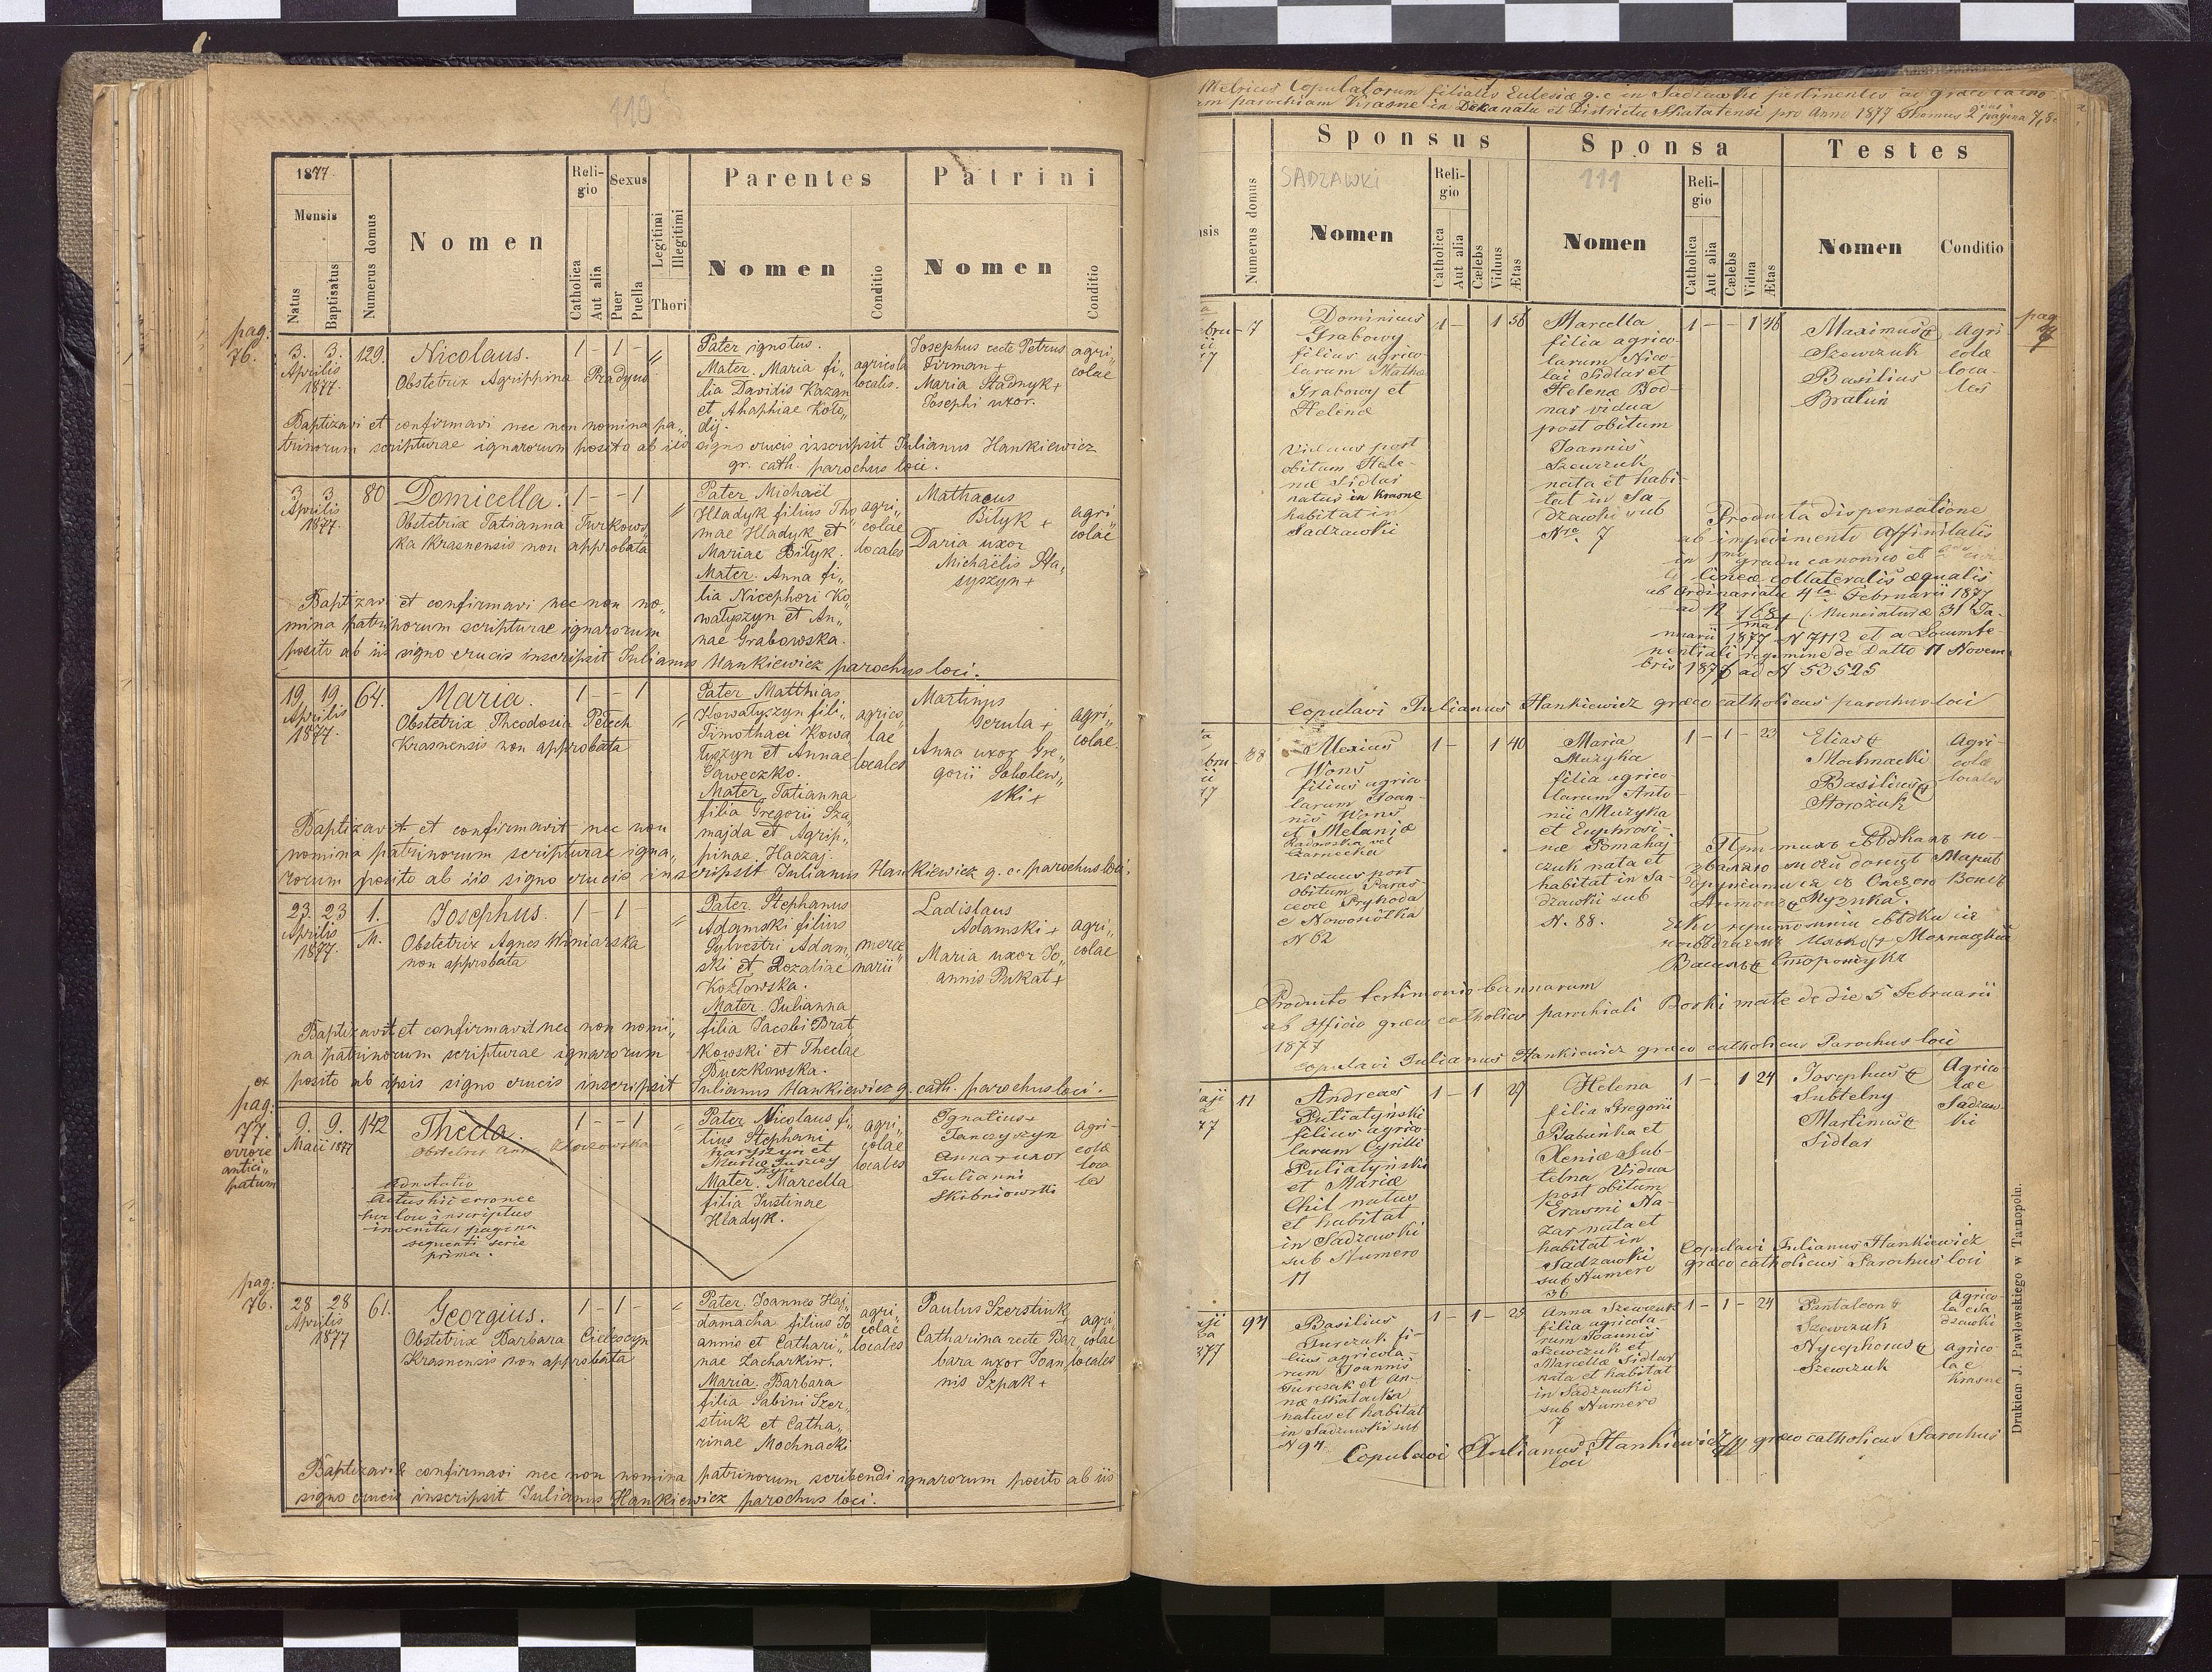 110
1877.
Mensis
Natus
Baptisatus
Numerus domus
Nomen
Religio
Catholica
Aut alia
Sexus
Puer
Puella
Legitimi
Illegitimi
Thori
Parentes
Nomen
Conditio
Patrini
Nomen
Conditio
pag:
76.
3. 3. 129. Nicolaus. 1 - 1 -
Aprilis
1877.
Obstetrix Agrippina
Pater ignotus.
Mater. Maria fi„
lia Davidis Kazan
et Ahaphiae Koło„
dij.
agricola
locales.
Josephus recte Petrus
Firman +
Maria Stadnyk +
Josephi uxor.
agri„
colae
Baptizavi et confirmavi nec non nomina pa„
trinorum scripturae ignarorum posito ab iis signo crucis inscripsit Julianus Hankiewicz
gr. cath. parochus loci.
3 3 80 Domicella. 1 - - 1
Aprilis
1877.
Obstetrix Tatianna Turkows„
ka Krasnensis non approbata
Pater Michaël
Hladyk filius Tho
mae Hladyk et
Mariae Biłyk.
Mater. Anna fi„
lia Nicephori Ko„
wałyszyn et An„
nae Grabowska.
agri„
colae
locales
Mathaeus
Biłyk +
Daria uxor
Michaëlis Sta„
syszyn +
agri
colae
Baptizavi et confirmavi nec non no„
mina patrinorum scripturae ignarorum
posito ab iis signo crucis inscripsit Julianus Hankiewicz parochus loci.
19 19 64. Maria. 1 - - 1
Aprilis
1877.
Obstetrix Theodosia Petech
Krasnensis non approbata
Pater Matthias
Kowałyszyn fili„
Timothaei Kowa
łyszyn et Annae
Gaweczko.
Mater Tatianna
filia Gregorii Sza
majda et Agrip„
pinae Haczaj.
agrico„
lae
locales
Martinus
Gerula +
Anna uxor Gre„
gorii Sobolew„
ski +
agri„
colae.
Baptizavit et confirmavit nec non
nomina patrinorum scripturae igna„
rorum posito ab iis signo crucis inscripsit Julianus Hankiewicz g. c. parochus loci.
23. 23 1. Josephus. 1 - 1 -
Aprilis
1877.
M.
Obstetrix Agnes Winiarska
non approbata
Pater. Stephanus
Adamski filius
Sylvestri Adam„
ski et Rozaliae
Kozłowska.
Mater. Julianna
filia Jacobi Brat
kowski et Theclae
Buczkowska.
merce
narii
Ladislaus
Adamski +
Maria uxor Jo„
annis Pukat +
agri„
colae
Baptizavit et confirmavit nec non nomi„
na patrinorum scripturae ignarorum
posito ab ipsis signo crucis inscripsit Julianus Hankiewicz g. cath. parochus loci.
ex
pag:
77.
errore
antici„
patum
9. 9. 142 Thecla. 1 - - 1
Maii 1877
Obstetrix Anna
Adnotatio
Actus hic erronee
hoc loco inscriptus
invenitur pagina
sequenti serie
prima.
Pater Nicolaus fi„
lius Stephani
Mater. Marcella
filia Justinae
Hladyk.
agri„
colae
locales
Ignatius +
Janczyszyn
Anna + uxor
Julianni
Skibniowski
agri-
colae
loca
les
pag:
76.
28 28 61. Georgius. 1 - 1 -
Aprilis
1877
Obstetrix Barbara
Krasnensis non approbata
Pater. Joannes Haj„
damacha filius Jo
annis et Cathari„
nae Zacharkiw.
Maria. Barbara
filia Sabini Szer„
stiuk et Catha„
rinae Mochnacki
agri„
colae
locales
Paulus Szerstiuk
+
Catharina recte Bar„
bara uxor Joan„
nis Szpak +
agri„
colae
locales
Baptizavi & confirmavi nec non nomina patrinorum scribendi ignarorum posito ab iis
signo crucis inscripsit Julianus Hankiewicz parochus loci.
Metrices Copulatorum filialis Eclesiæ g.c in Sadzawki pertinentis ad græco catho
am parochiam Krasne in Dekanatu et Districtu Skałatensi pro Anno 1877 Thomus 2 pagina 7, 8
Numerus domus
Sponsus
SADZAWKI
Nomen
Religio
Catholica
Aut alia
Cælebs
Viduus
Ætas
Sponsa
111
Nomen
Religio
Catholica
Aut alia
Cælebs
Vidua
Ætas
Testes
Nomen
Conditio
pag
7
7
Dominicus
Grabowy
filius agrico-
larum Mathæ
Grabowy et
Helenæ
Viduus post
obitum Hele-
næ Sidlar
natus in Krasne
habitat in
Sadzawki
1 - 1 56
Marcella
filia agrico-
larum Nico-
lai Sidlar et
Helenæ Bod-
nar vidua
post obitum
Joannis
Szewczuk
nata et habi
tat in Sa-
dzawki sub
Nro. 7
1 - - 1 46
Maximus
Szewczuk
Basilius
Agri
colæ
loca-
les
Producta dispensatione
ab impedimento Affinitatis
in gradu canonico et
lineæ collateralis æqualis
ab Ordinariatu 4ta Februarii 1877
ad N 168 (Nunciaturæ 31 Ja-
nuarii 1877 N 7112 et a Locumte-
nentiali regimine de Datto 11 Novem
bris 1876 ad N 53525
Copulavi Julianus Hankiewicz græco catholicus parochus loci
88
Alexius
Wons
filius agrico-
larum Joan-
nis Wons
et Melaniæ
Radowska vel
Czarnecka
Viduus post
obitum Paras-
cevæ Pryhoda
e Nowosiółka
N 62
1 - 1 40
Maria
Muzyka
filia agrico-
larum Anto-
nii Muzyka
et Euphrosi-
næ Pomahaj
czuk nata et
habitat in Sa-
dzawki sub
N. 88.
1 - 1 - 23
Elias
Mochnacki
Basilius
Storożuk
Agri
colæ
locales
Producto testimonio bannarum
ab Officio græco catholico parochiali Borki małe de die 5 Februarii
1877
Copulavi Julianus Hankiewicz græco catholicus Parochus loci
11
Andreas
Putiatyński
filius agrico-
larum Cyrilli
Putiatyński
et Mariæ
Chil natus
et habitat
in Sadzawki
sub Numero
11
1 - 1 27
Helena
filia Gregorii
Babuńka et
Xeniæ Sub-
telna Vidua
post obitum
Erasmi Na-
zar nata et
habitat in
Sadzawki
sub Numero
36
1 - 1 24
Josephus
Subtelny
Martinus
Sidlar
Agrico-
læ
Sadzaw-
ki
Copulavi Julianus Hankiewicz
græco catholicus Parochus loci
94
Basilius
Turczak fi-
lius agricola-
rum Joannis
Turczak et An-
næ Skałacka
natus et habitat
in Sadzawki sub
N 94
1 - 1 - 25
Anna Szewczuk
filia agricola-
rum Joannis
Szewczuk et
Marcellæ Sidlar
nata et habitat
in Sadzawki
sub Numero
7
1 - 1 - 24
Pantaleon
Szewczuk
Nycephorus
Szewczuk
Agrico
læ Sa
dzawki
agrico
læ
Krasne
Copulavi Julianus Hankiewicz græco catholicus Parochus
loci
Drukiem J. Pawłowskiego w Tarnopolu.